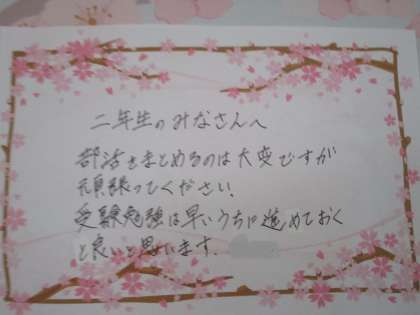 二年生のみなさんへ
部活をまとめるのは大変ですが
頑張ってください.
受験勉強は早いうちに進めておく
と良いと思います.